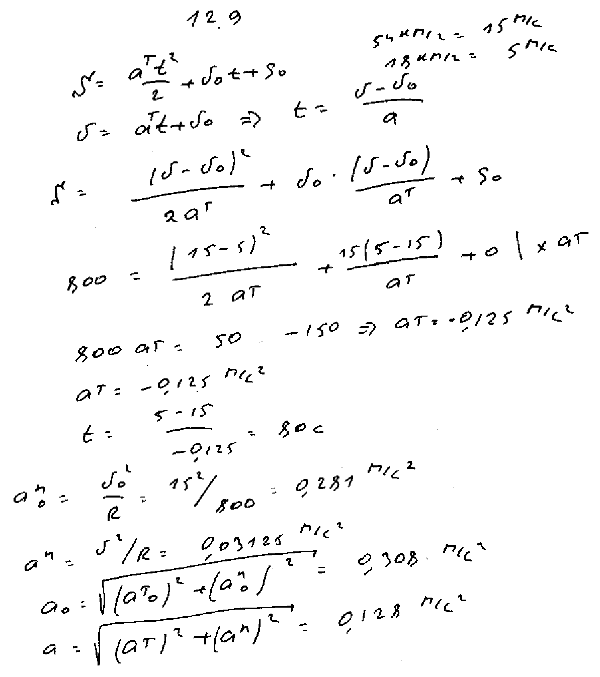 12.9
54 км/г = 15 м/с
18 км/г = 5 м/с
S = a^τ t²/2 + v₀t + S₀
v = a^τ t + v₀ ⇒ t = (v - v₀)/a
S = (v - v₀)²/(2a^τ) + v₀ · (v - v₀)/a^τ + S₀
800 = (15-5)²/(2a^τ) + 15(5-15)/a^τ + 0 | × a^τ
800 a^τ = 50 - 150 ⇒ a^τ = -0,125 м/с²
a^τ = -0,125 м/с²
t = (5-15)/(-0,125) = 80 с
a₀ⁿ = v₀²/R = 15²/800 = 0,281 м/с²
aⁿ = v²/R = 0,03125 м/с²
a₀ = √((a^τ₀)² + (a₀ⁿ)²) = 0,308 м/с²
a = √((a^τ)² + (aⁿ)²) = 0,128 м/с²